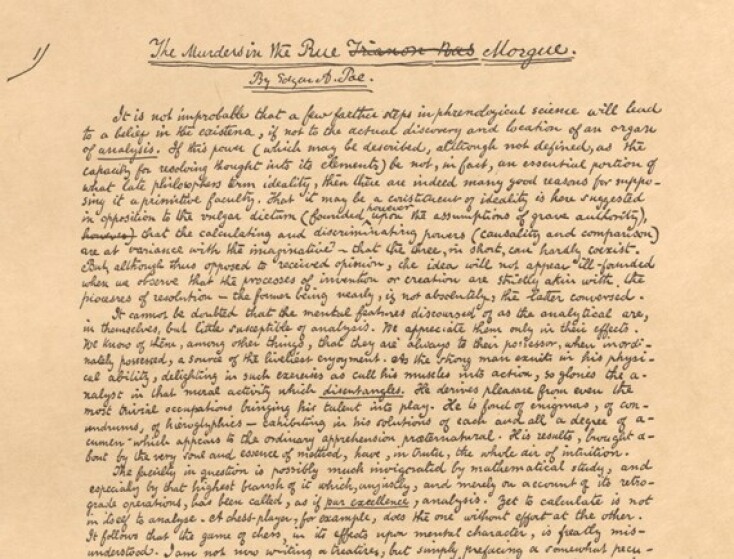 1)
The Murders in the Rue Trianon Bas Morgue.
By Edgar A. Poe.
It is not improbable that a few farther steps in phrenological science will lead
to a belief in the existence, if not to the actual discovery and location of an organ
of analysis. If this power (which may be described, although not defined, as the
capacity for resolving thought into its elements) be not, in fact, an essential portion of
what late philosophers term ideality, then there are indeed many good reasons for suppo-
sing it a primitive faculty. That it may be a constituent of ideality is here suggested
in opposition to the vulgar dictum (founded, however, upon the assumptions of grave authority),
however) that the calculating and discriminating powers (causality and comparison)
are at variance with the imaginative — that the three, in short, can hardly coexist.
But, although thus opposed to received opinion, the idea will not appear ill-founded
when we observe that the processes of invention or creation are strictly akin with the
processes of resolution — the former being nearly, if not absolutely, the latter conversed.
It cannot be doubted that the mental features discoursed of as the analytical are,
in themselves, but little susceptible of analysis. We appreciate them only in their effects.
We know of them, among other things, that they are always to their possessor, when inordi-
nately possessed, a source of the liveliest enjoyment. As the strong man exults in his physi-
cal ability, delighting in such exercises as call his muscles into action, so glories the a-
nalyst in that moral activity which disentangles. He derives pleasure from even the
most trivial occupations bringing his talent into play. He is fond of enigmas, of con-
undrums, of hieroglyphics — exhibiting in his solutions of each and all a degree of a-
cumen which appears to the ordinary apprehension preternatural. His results, brought a-
bout by the very soul and essence of method, have, in truth, the whole air of intuition.
The faculty in question is possibly much invigorated by mathematical study, and
especially by that highest branch of it which, unjustly, and merely on account of its retro-
grade operations, has been called, as if par excellence, analysis. Yet to calculate is not
in itself to analyse. A chess-player, for example, does the one without effort at the other.
It follows that the game of chess, in its effects upon mental character, is greatly mis-
understood. I am not now writing a treatise, but simply prefacing a somewhat pecu-